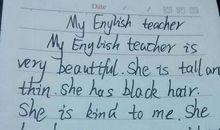 Date
My English teacher
My English teacher is
very beautiful. She is tall an
thin. She has black hair.
She is kind to me. She